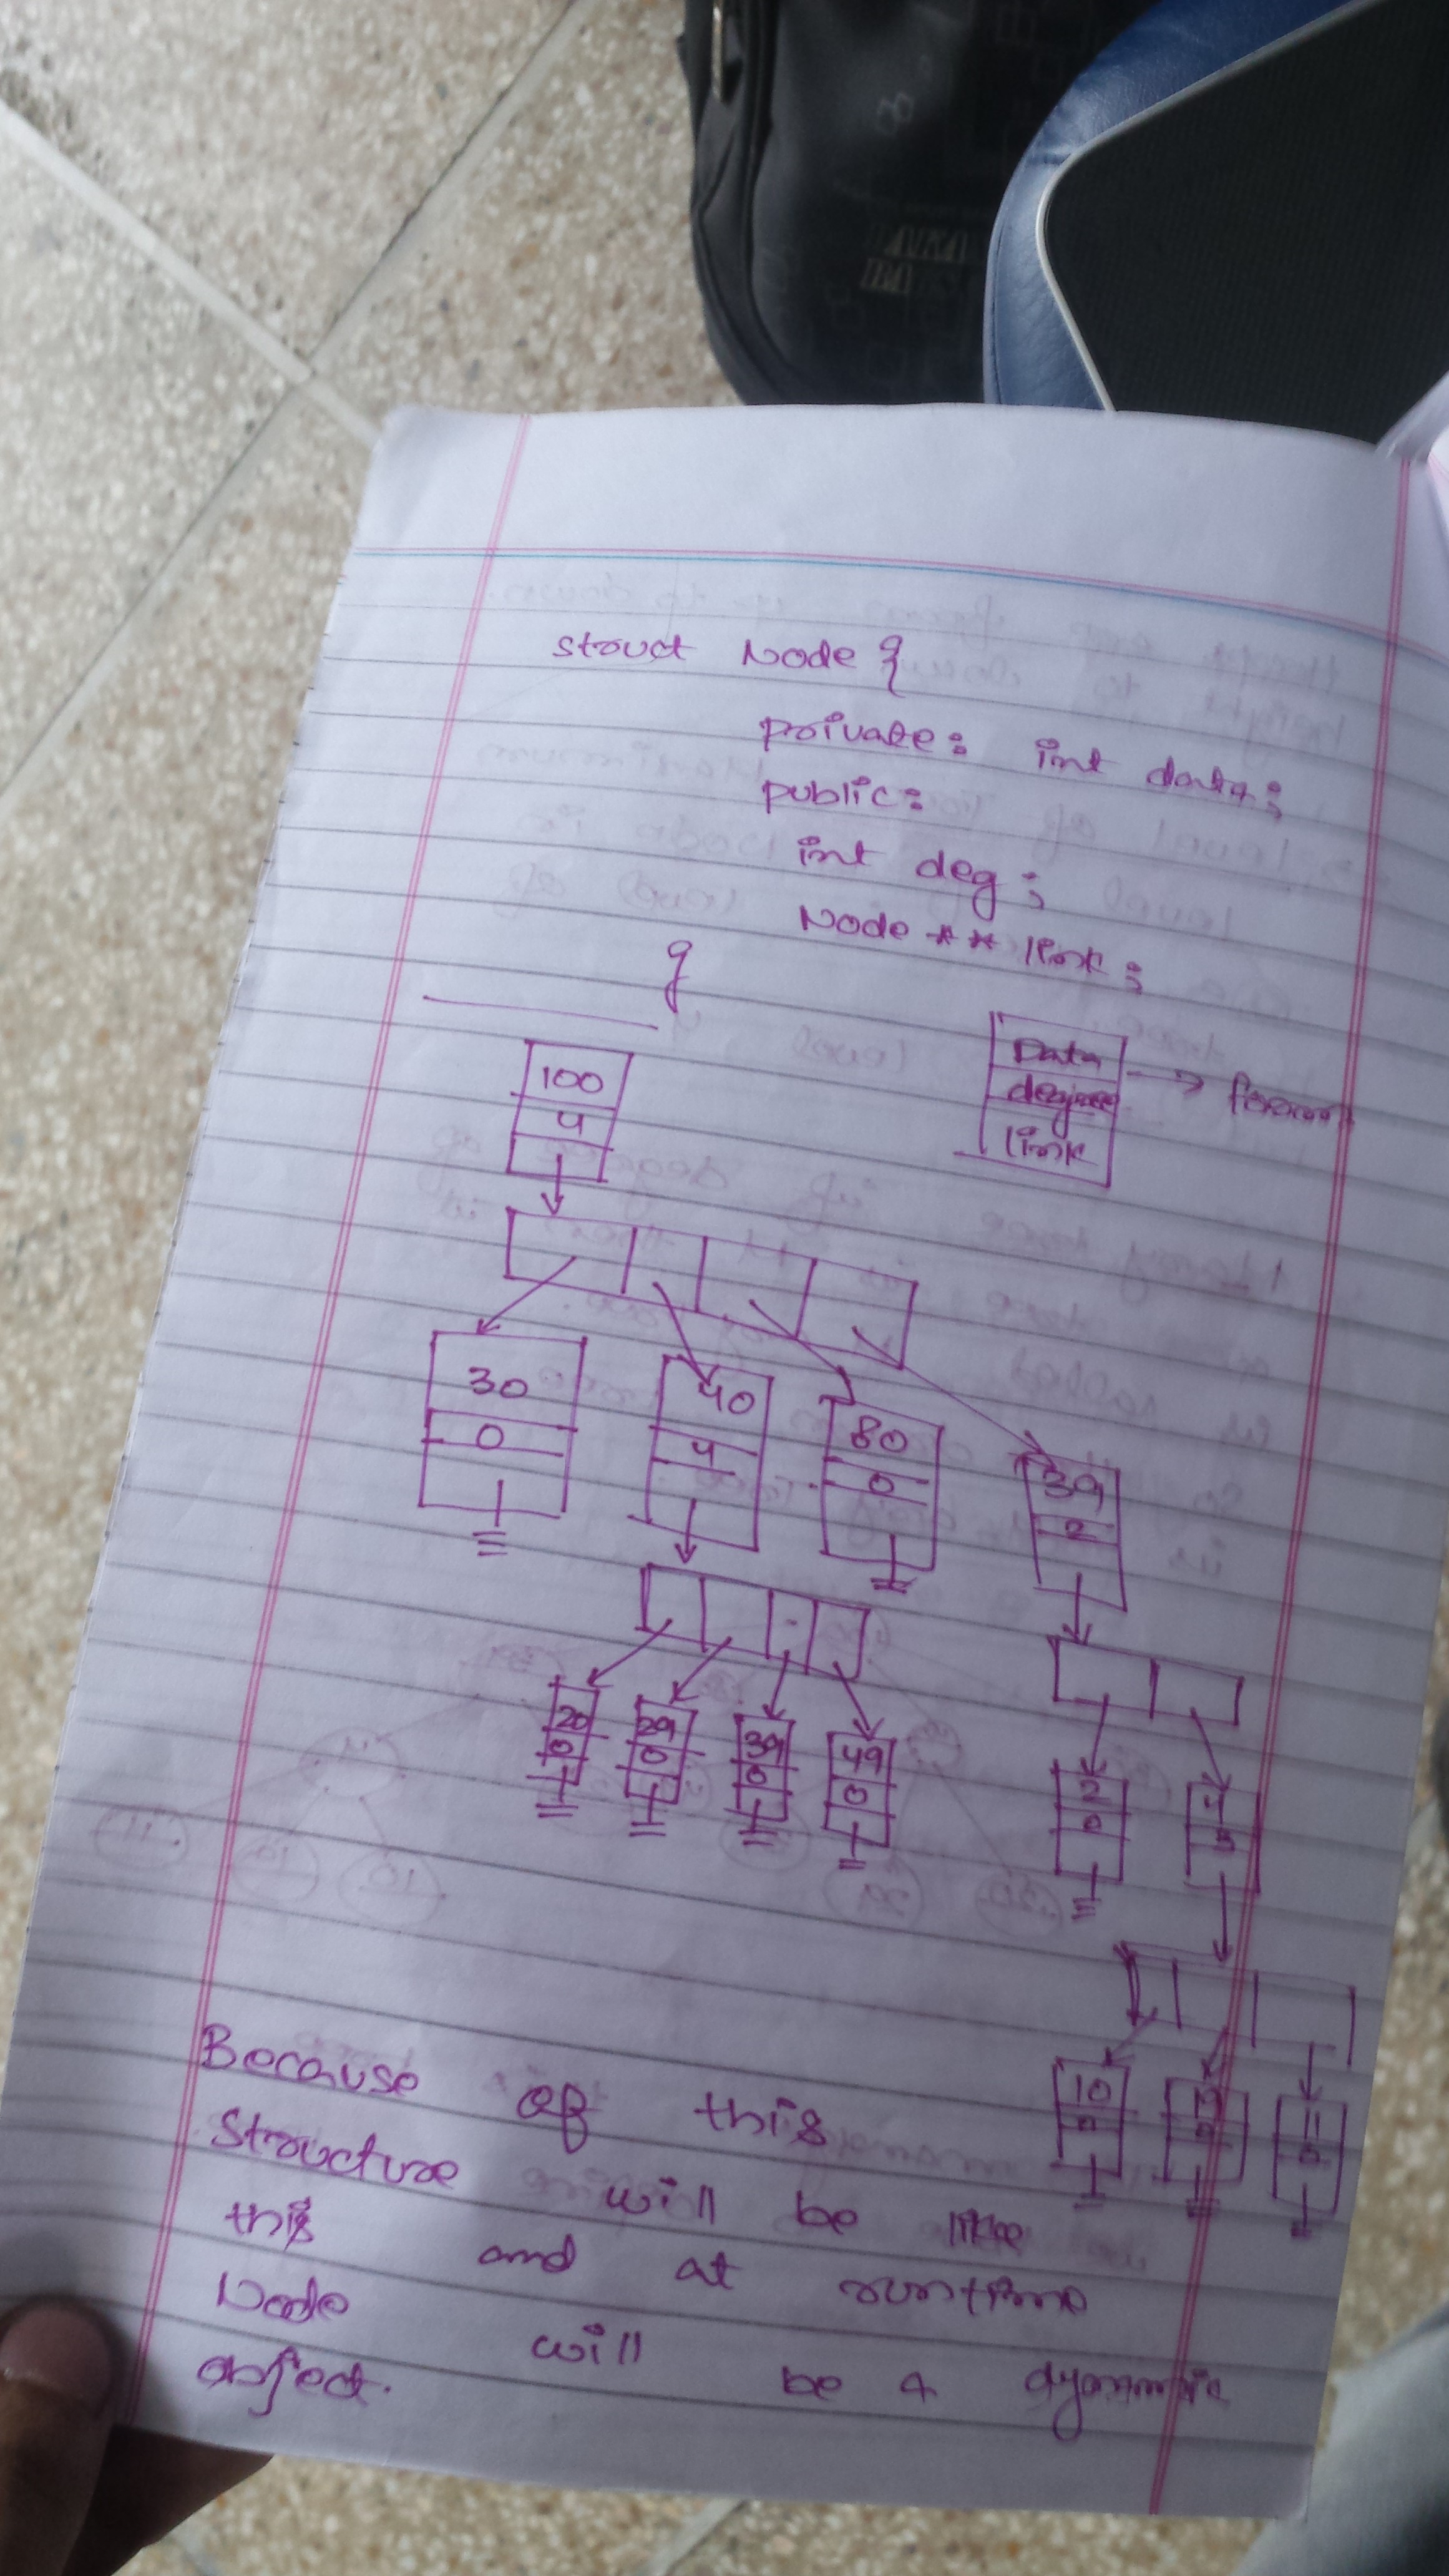 struct Node {
private: int data;
public:
int deg;
Node ** link;
}
100
4
Data
degree
link
30
0
40
4
80
0
39
2
20
0
29
0
39
0
49
0
2
0
3
10
0
11
0
Because of this
structure will be like
this and at runtime
Node will be a dynamic
object.